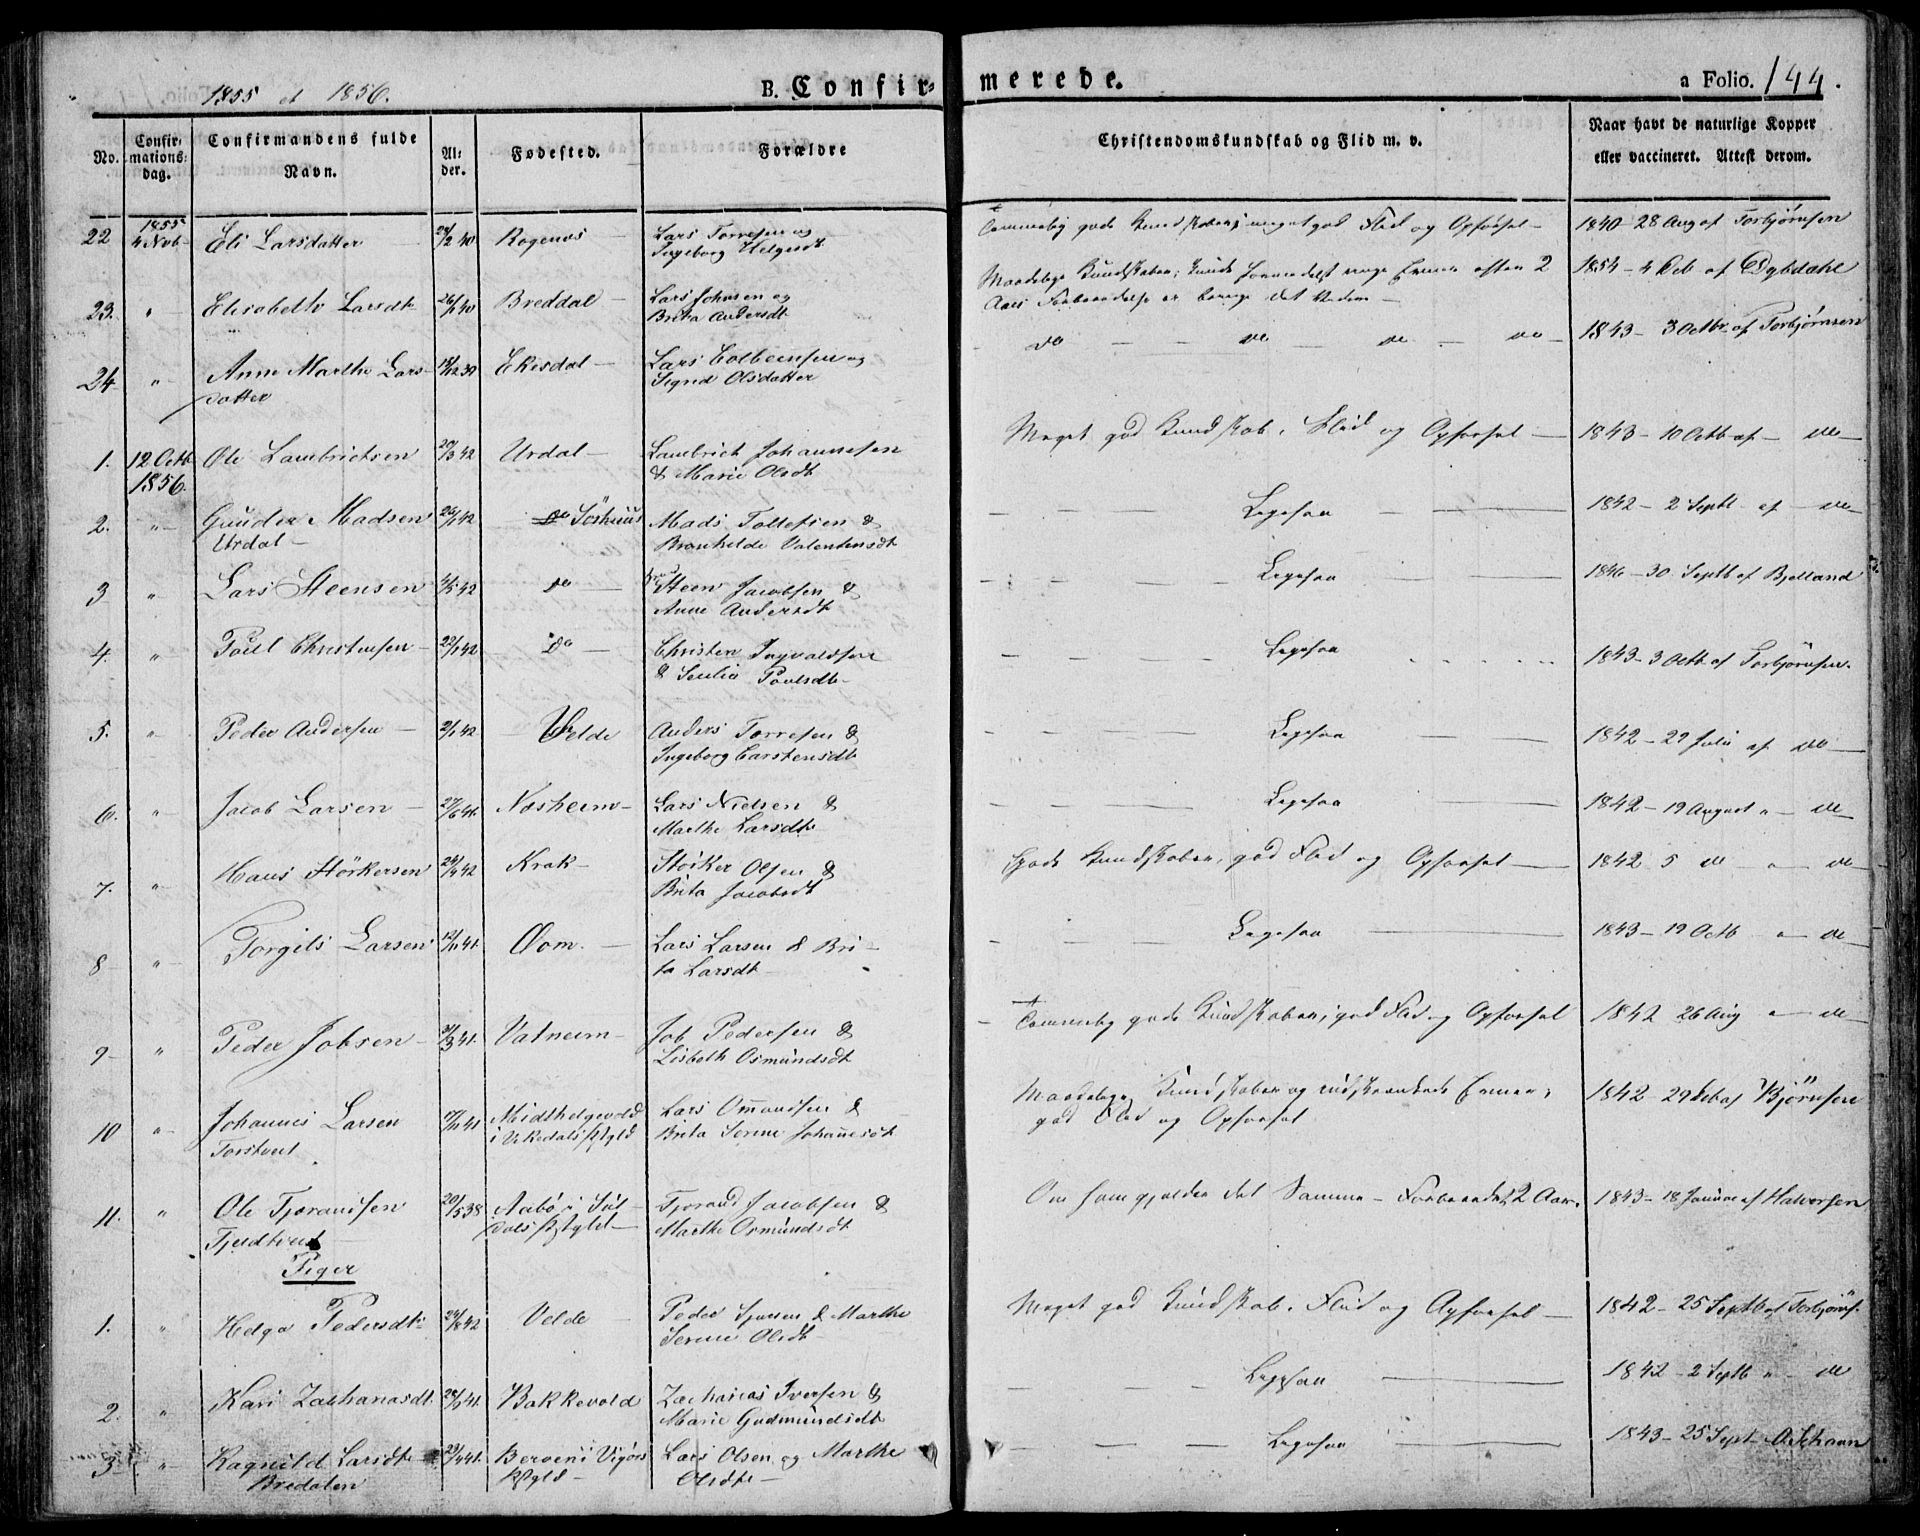 1855 et 1856.
B. Confirmerede.
a Folio. 144.
No.
Confirmations-dag.
Confirmandens fulde Navn.
Alder.
Fødested.
Forældre
Christendomskundskab og Flid m. v.
Naar havt de naturlige Kopper eller vaccineret. Attest derom.
22 1855 4 Nvb Eli Larsdatter 2 40 Rogenes Lars Torresen og Ingeborg Helgesdt Temmelig gode Kundskaber, meget god Flid og Opførsel 1840 - 28 Aug af Torbjørnsen
23. " Elisabeth Larsdt 26/1 40 Breddal Lars Johnsen og Brita Andersdt Maadelige Kundskaber, 2 Aars Forberedelse 1854 - 4 af Dybdahl
24 " Anne Marthe Larsdatter 39 Ekisdal Lars og Sigrid Olsdatter do do do do 1843 - 3 Octbr af Torbjørnsen
1. 12 Octb 1856. Ole Lambrichtsen 20/3 42 Urdal Lambrict Johannesen & Marie Olsdt Meget god Kundskab, Flid og Opførsel 1843 - 10 Octb af do
2. " Guuder Madsen Urdal 42 Mads Tollefsen & Bronhilde Valentinsdt Ligesaa 1842 - 2 Septb af do
3 " Lars Steensen 4/5 42 do Steen Jacobsen & Anne Andersdt Ligesaa 1846 - 30 Septb af Bjelland
4. " Poul Christensen 22/1 42 do Christen Ingvaldsen & Paulsdt Ligesaa 1843 - 3 Octb af Torbjørnsen
5. " Peder Andersen 2/1 42 Velde Anders Torresen & Ingeborg Carstensdt Ligesaa 1842 - 29 Juli af do
6. " Jacob Larsen 27/6 41. Nesheim Lars Nielsen & Marthe Larsdt Ligesaa 1842 - 19 August " do
7. " Hans Störkersen 42 Krak Störker Olsen & Brita Jacobsdt Gode Kundskaber, god Flid og Opførsel 1842 5 do " do
8 " Torgils Larsen 12/11 41. Øom. Lars Larsen & Brita Larsdt Ligesaa 1843 - 19 Octb " do
9 " Peder Jobsen 31/3 41. Vatneim Job Pedersen & Lisbeth Osmundsdt Temmelig gode Kundskaber, god Flid og Opførsel 1842 26 Aug " do
10 " Johannes Larsen Torstveit 41 Midthelgevold i Vikedals Pgld Lars Omundsen & Brita Serine Johannesdt Maadelige Kundskaber og indskrænkede Evner, god Flid og Opførsel 1842 - 29 af Bjørnsen
11. " Ole Tjerandsen 20/5 38 Aabø i Suldals Pgld Tjerand Jacobsen & Marthe Osmundsdt Om ham gjelder det Samme - Forberedt 2 Aar. 1843 - 18 Januar af Halvorsen
Piger
1. " Helga Pedersdt 24/8 42 Velde Peder & Marthe Serine Olsdt Meget god Kundskab, Flid og Opførsel 1842 - 25 Septb af Torbjörns.
2. " Kari Zachariasdt 41. Bakkevold Zacharias Iversen & Marie Gudmundsdt Ligesaa 1842 - 2 Septb " do
3 " Ragnild Larsdt Bredalen 41. i Vigørs Pgld Lars Olsen og Marthe Olsdt Ligesaa 1843 - 25 Sept